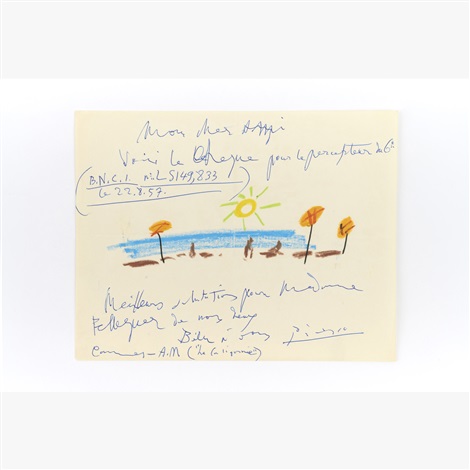 Mon cher
Voici le chèque pour le percepteur du 6e
B.N.C.I. no L 5149,833
le 22.8.57.
Meilleures salutations pour Madame
de nous deux
Bien à vous Picasso
Cannes - A.M ("La Californie")